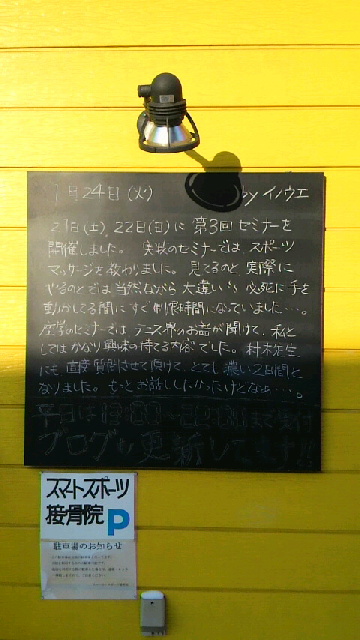 月24日(火) by イノウエ
21日(土)、22日(日)に 第3回 セミナーを
開催しました。 実技のセミナーでは スポーツ
マッサージを教わりました。 見てるのと 実際に
やるのとでは 当然ながら 大違い!! 必死に 手を
動かしてる間に すぐ 制限時間に なっていました…。
座学のセミナーでは テニス界のお話が聞けて、私と
してはかなり 興味の持てる内容でした。 村木先生
にも 直接質問させて頂けて、とても 濃い2日間と
なりました。 もっとお話ししたかったけどなぁ…。
平日は まで受付
ブログも更新してます!!
スマートスポーツ
接骨院 P
駐車場のお知らせ